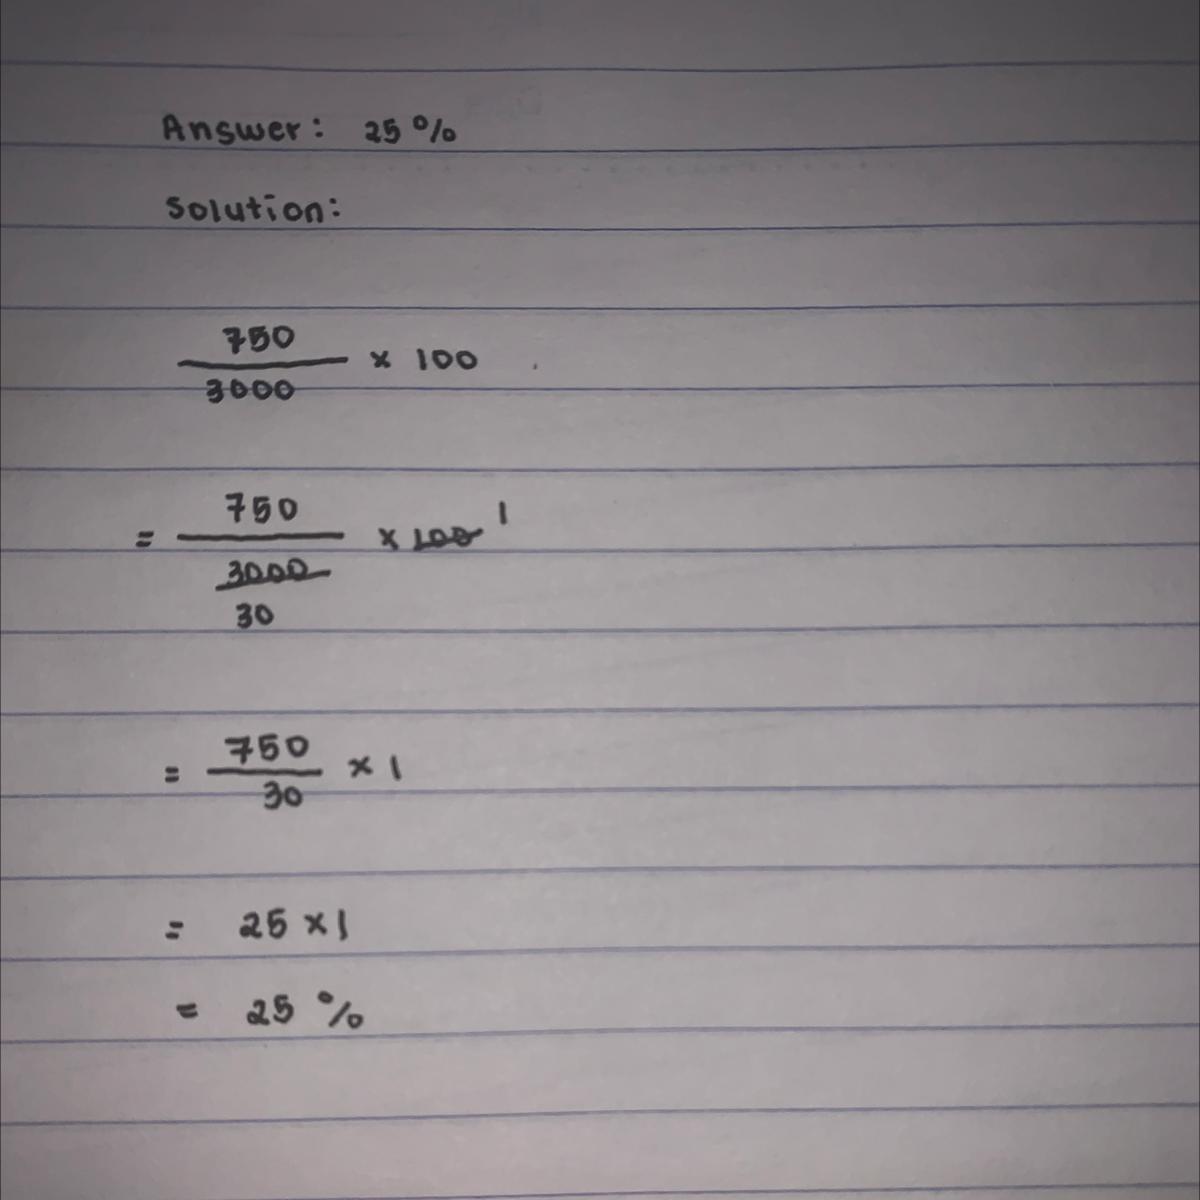 Answer: 25%
Solution:
750
3000
x 100
=
750
3000
30
x 100 1
=
750
30
x 1
= 25 x 1
= 25 %